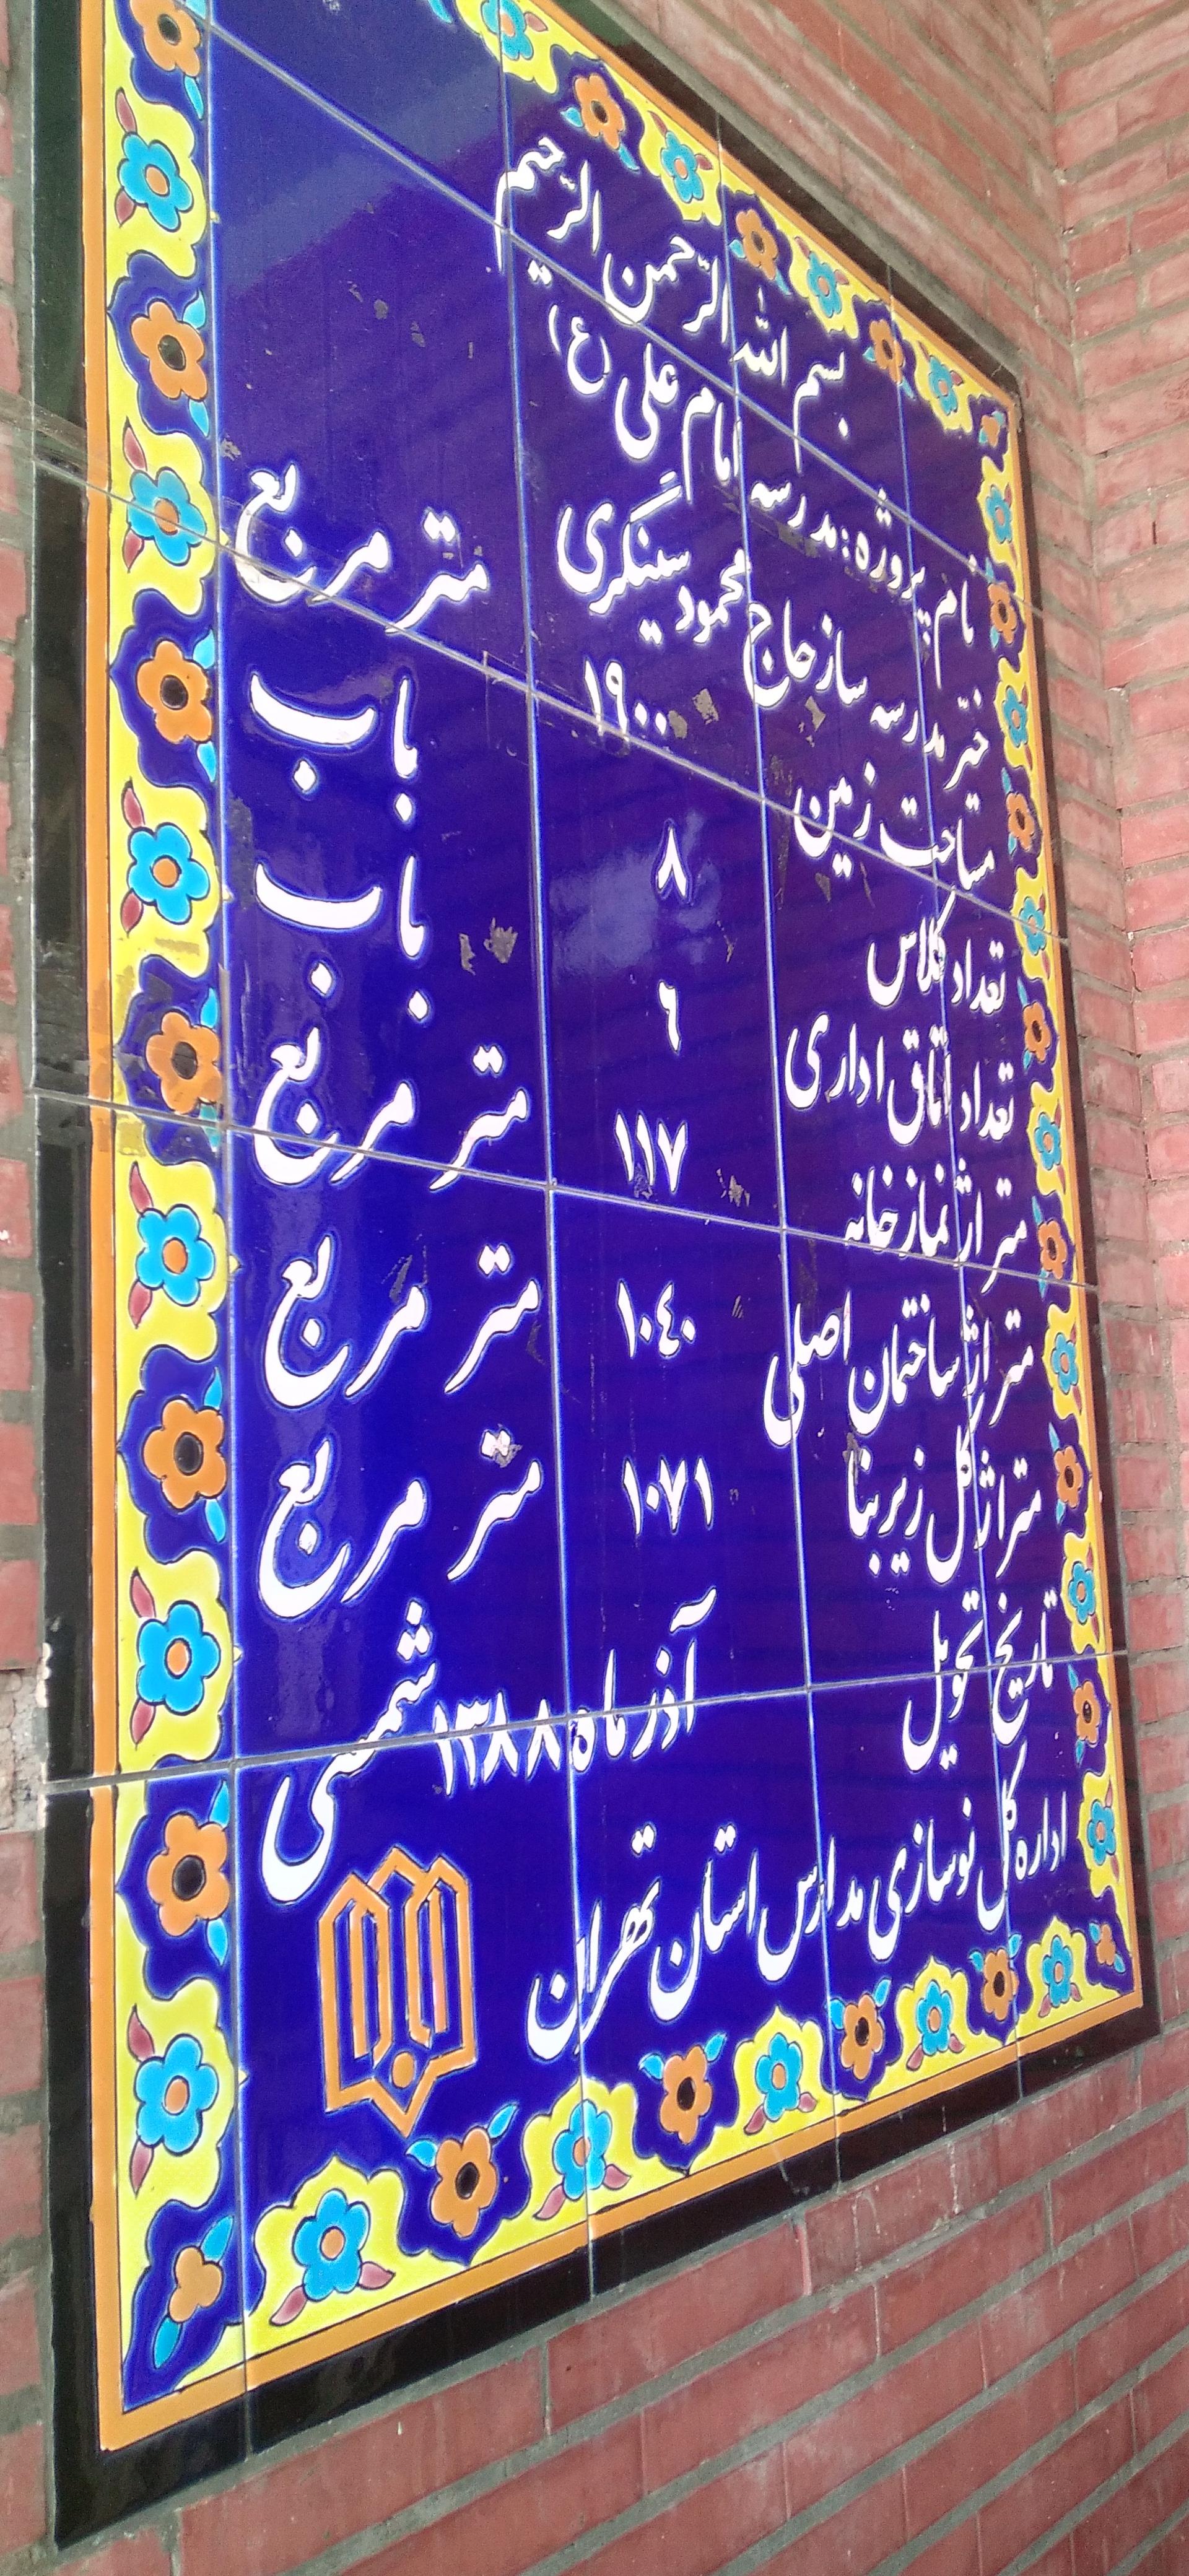 بسم الله الرّحمن الرّحیم
نام پروژه: مدرسه امام علی (ع)
خیّر مدرسه ساز حاج محمود سینکری
مساحت زمین ۱۹۰۰ متر مربع
تعداد کلاس ۸ باب
تعداد اتاق اداری ۶ باب
متراژ نمازخانه ۱۱۷ متر مربع
متراژ ساختمان اصلی ۱۰۴۰ متر مربع
متراژ کل زیربنا ۱۰۷۱ متر مربع
تاریخ تحویل آذر ماه ۱۳۸۸ شمسی
اداره کل نوسازی مدارس استان تهران